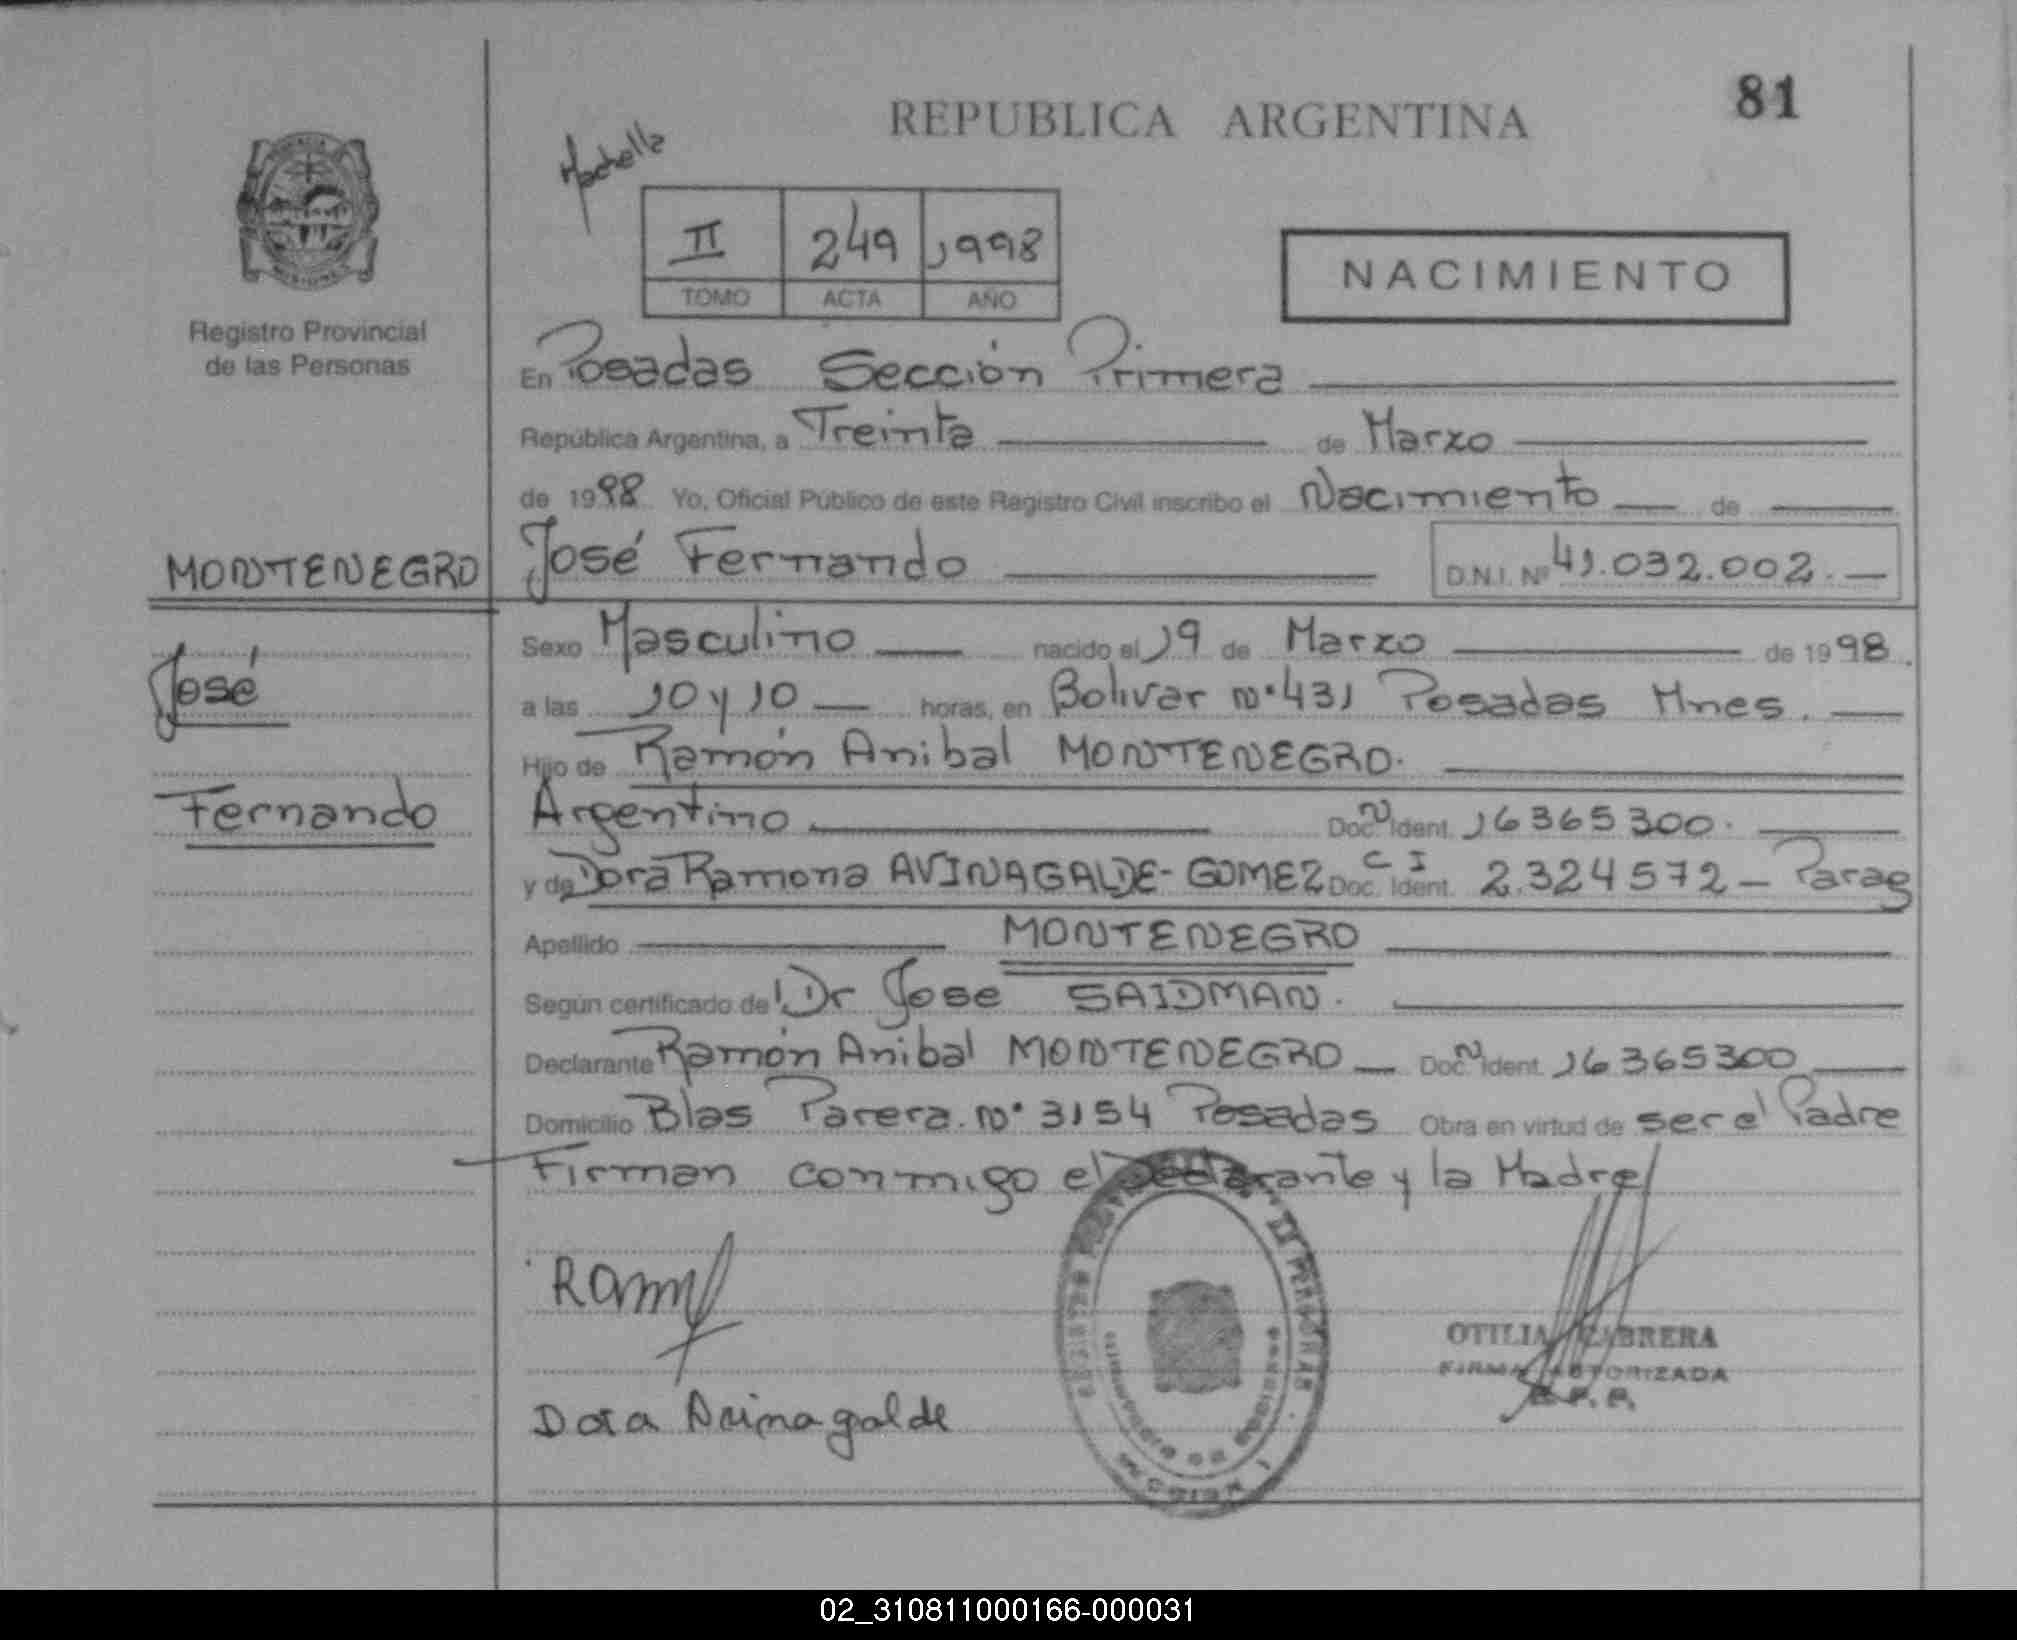 81
REPUBLICA ARGENTINA
II 249 1998
TOMO ACTA AÑO
NACIMIENTO
Registro Provincial
de las Personas
En Posadas Sección Primera
República Argentina, a Treinta de Marzo
de 1998 Yo, Oficial Público de este Registro Civil inscribo el Nacimiento de
MONTENEGRO José Fernando D.N.I. Nº 41.032.002.
Sexo Masculino nacido el 19 de Marzo de 1998.
José
a las 10 y 10 horas, en Bolivar Nº 431 Posadas Mnes.
Hijo de Ramón Anibal MONTENEGRO.
Fernando
Argentino Doc. N Ident. 16365300.
y de Dora Ramona AVINAGALDE-GOMEZ Doc. Ident. C I 2.324572 - Parag
Apellido MONTENEGRO
Según certificado de Dr Jose SAIDMAN.
Declarante Ramón Anibal MONTENEGRO Doc. N Ident. 16365300
Domicilio Blas Parera. Nº 3154 Posadas Obra en virtud de ser el Padre
Firman conmigo el Declarante y la Madre
OTILIA CABRERA
FIRMA AUTORIZADA
R.P.P.
Dora Avinagalde
02_310811000166-000031